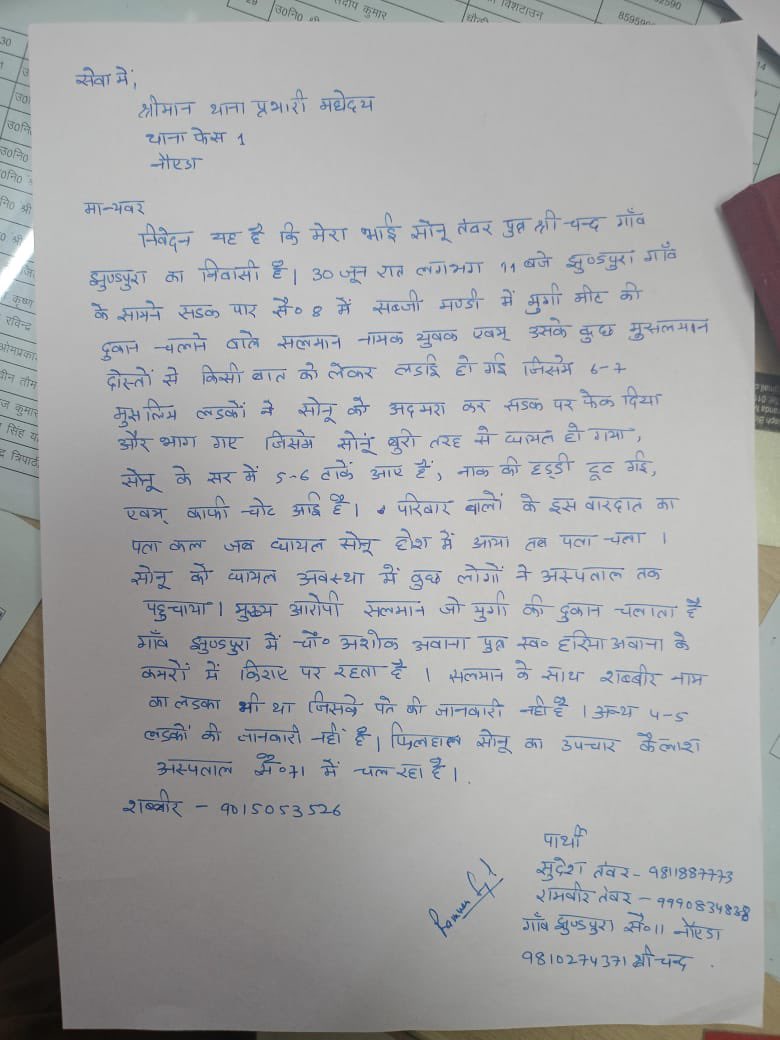 29 उ0नि0 श्री संदीप कुमार
विशटाउन
8595900
30
उ0नि0
उ0नि0
उ0नि0
श्री
कृष्ण
रविन्द्र
ओमप्रका
ज कुमार
सिंह
त्रिपाठी
14
सेवा में,
श्रीमान थाना प्रभारी महोदय
थाना फेस 1
नौएडा
मान्यवर
निवेदन यह है कि मेरा भाई सोनू तंवर पुत्र श्री चन्द गाँव
झुण्डपुरा का निवासी है। 30 जून रात लगभग 11 बजे झुण्डपुरा गाँव
के सामने सडक पार सै० 8 में सब्जी मण्डी में मुर्गा मीट की
दुकान चलाने वाले सलमान नामक युवक एवम् उसके कुछ मुसलमान
दोस्तों से किसी बात को लेकर लडाई हो गई जिसमे 6-7
मुसलिम लडकों ने सोनू को अदमरा कर सडक पर फेक दिया
और भाग गए जिसमे सोनूं बुरी तरह से घायल हो गया,
सोनू के सर में 5-6 टाकें आए हैं, नाक की हड्डी टूट गई,
एवम् काफी चोट आई है। परिवार वालों के इस वारदात का
पता कल जब घायल सोनू होश में आया तब पता चला।
सोनू को घायल अवस्था में कुछ लोगों ने अस्पताल तक
पहुचाया। मुख्य आरोपी सलमान जो मुर्गा की दुकान चलाता है
गाँव झुण्डपुरा में चौ० अशोक अवाना पुत्र स्व० हरिया अवाना के
कमरों में किराए पर रहता है। सलमान के साथ शब्बीर नाम
का लडका भी था जिसके पते की जानकारी नही है। अन्य 4-5
लडकों की जानकारी नही है। फिलहाल सोनू का उपचार कैलाश
अस्पताल सै०71 में चल रहा है।
शब्बीर - 9015053526
पार्थी
सुदेश तंवर - 9811887773
रामबीर तंवर - 9990834838
गाँव झुण्डपुरा सै०11 नौएडा
9810274371 श्री चन्द